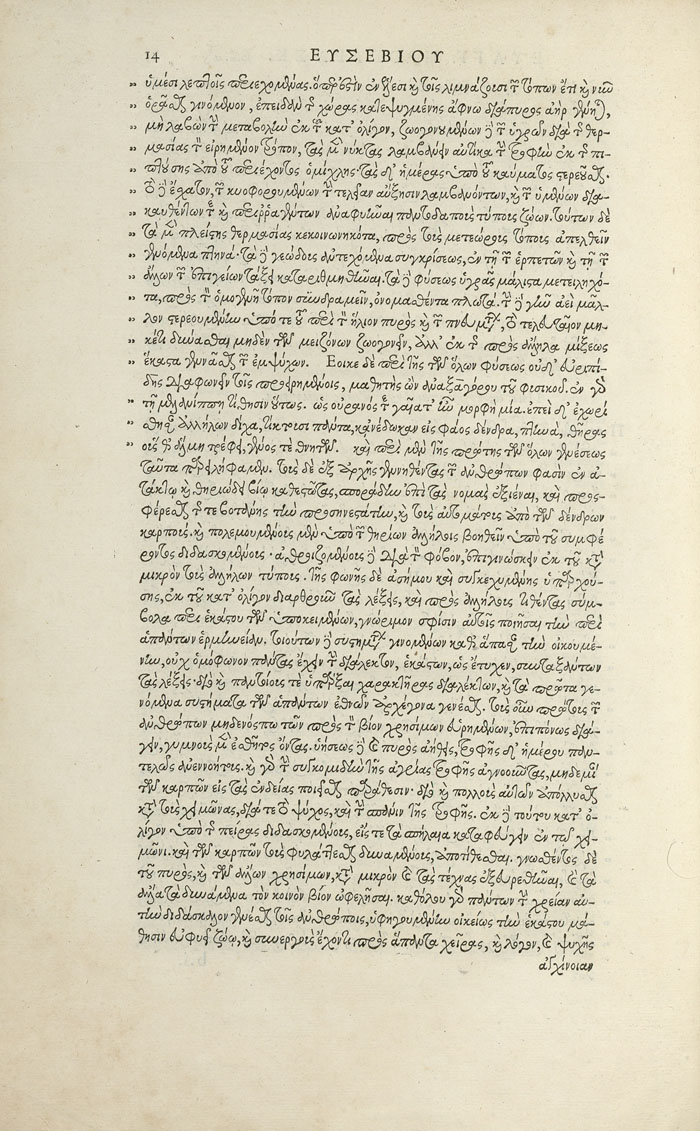 14 ΕΥΣΕΒΙΟΥ
„ ὑμέσι λεπτοῖς περιεχομένας. ὅπερ ἔτι ἐν ἕλεσι καὶ τοῖς λιμνάζουσι τῶν τόπων ἔτι καὶ νῦν
„ ὁρᾶσθαι γινόμενον, ἐπειδὰν τῆς χώρας κατεψυγμένης ἄφνω διάπυρος ἀὴρ γένηται,
„ μὴ λαβὼν τὴν μεταβολὴν ἐκ τοῦ κατ' ὀλίγον, ζωογονουμένων δὲ τῶν ὑγρῶν διὰ τῆς θερ-
„ μασίας τὸν εἰρημένον τρόπον, τὰς μὲν νύκτας λαμβάνειν αὐτίκα τὴν τροφὴν ἐκ τῆς πι-
„ πτούσης ἀπὸ τοῦ περιέχοντος ὀμίχλης· τὰς δ' ἡμέρας ὑπὸ τοῦ καύματος στερεοῦσθαι.
„ τὸ δὲ ἔσχατον, τῶν κυοφορουμένων τὴν τελείαν αὔξησιν λαμβανόντων, καὶ τῶν ὑμένων δια-
„ καυθέντων τε καὶ περιρραγέντων ἀναφυῆναι παντοδαποὺς τύπους ζώων. τούτων δὲ
„ τὰ μὲν πλείστης θερμασίας κεκοινωνηκότα, πρὸς τοὺς μετεώρους τόπους ἀπελθεῖν
„ γενόμενα πτηνά· τὰ δὲ γεώδους ἀντεχόμενα συγκρίσεως, ἐν τῇ τῶν ἑρπετῶν καὶ τῇ τῶν
„ ἄλλων τῶν ἐπιγείων τάξει καταριθμηθῆναι. τὰ δὲ φύσεως ὑγρᾶς μάλιστα μετειληχό-
„ τα, πρὸς τὸν ὁμογενῆ τόπον συνδραμεῖν, ὀνομασθέντα πλωτά. τὴν δὲ γῆν ἀεὶ μᾶλ-
„ λον στερεουμένην ὑπό τε τοῦ περὶ τὸν ἥλιον πυρὸς καὶ τῶν πνευμάτων, τὸ τελευταῖον μη-
„ κέτι δύνασθαι μηδὲν τῶν μειζόνων ζωογονεῖν, ἀλλ' ἐκ τῆς πρὸς ἄλληλα μίξεως
„ ἕκαστα γεννᾶσθαι τῶν ἐμψύχων. Ἔοικε δὲ περὶ τῆς τῶν ὅλων φύσεως οὐδ' εὐριπί-
„ δης διαφωνεῖν τοῖς προειρημένοις, μαθητὴς ὢν ἀναξαγόρου τοῦ φυσικοῦ. ἐν γὰρ
„ τῇ μελανίππῃ τίθησιν οὕτως. ὡς οὐρανός τε γαῖά τ' ἦν μορφὴ μία. ἐπεὶ δ' ἐχωρί
„ σθησαν ἀλλήλων δίχα, τίκτουσι πάντα, κἀνέδωκαν εἰς φάος δένδρα, πτηνὰ, θῆρας
„ οὕς θ' ἅλμη τρέφει, γένος τε θνητῶν. καὶ περὶ μὲν τῆς πρώτης τῶν ὅλων γενέσεως
ταῦτα παρειλήφαμεν. τοὺς δὲ ἐξ ἀρχῆς γεννηθέντας τῶν ἀνθρώπων φασὶν ἐν ἀ-
τάκτῳ καὶ θηριώδει βίῳ καθεστῶτας, σποράδην ἐπὶ τὰς νομὰς ἐξιέναι, καὶ προσ-
φέρεσθαι τῆς τε βοτάνης τὴν προσηνεστάτην, καὶ τοὺς αὐτομάτους ἀπὸ τῶν δένδρων
καρπούς. καὶ πολεμουμένους μὲν ὑπὸ τῶν θηρίων ἀλλήλοις βοηθεῖν ὑπὸ τοῦ συμφέ
ροντος διδασκομένους· ἀθροιζομένους δὲ διὰ τὸν φόβον, ἐπιγινώσκειν ἐκ τοῦ κατὰ
μικρὸν τοὺς ἀλλήλων τύπους. τῆς φωνῆς δὲ ἀσήμου καὶ συγκεχυμένης ὑπαρχού-
σης, ἐκ τοῦ κατ' ὀλίγον διαρθροῦν τὰς λέξεις, καὶ πρὸς ἀλλήλους τιθέντας σύμ-
βολα περὶ ἑκάστου τῶν ὑποκειμένων, γνώριμον σφίσιν αὐτοῖς ποιῆσαι τὴν περὶ
ἁπάντων ἑρμηνείαν. τοιούτων δὲ συστημάτων γινομένων καθ' ἅπασαν τὴν οἰκουμέ-
νην, οὐχ ὁμόφωνον πάντας ἔχειν τὴν διάλεκτον, ἑκάστων, ὡς ἔτυχεν, συνταξάντων
τὰς λέξεις· διὸ καὶ παντοίους τε ὑπάρξαι χαρακτῆρας διαλέκτων, καὶ τὰ πρῶτα γε-
νόμενα συστήματα τῶν ἁπάντων ἐθνῶν ἀρχέγονα γενέσθαι. τοὺς οὖν πρώτους τῶν
ἀνθρώπων μηδενός πω τῶν πρὸς τὸν βίον χρησίμων εὑρημένων, ἐπιπόνως διά-
γειν, γυμνοὺς μὲν ἐσθῆτος ὄντας. οἰκήσεως δὲ καὶ πυρὸς ἀήθεις, τροφῆς δ' ἡμέρου παν-
τελῶς ἀνεννοήτους. καὶ γὰρ τὴν συγκομιδὴν τῆς ἀγρίας τροφῆς ἀγνοοῦντας, μηδεμίαν
τῶν καρπῶν εἰς τὰς ἐνδείας ποιεῖσθαι παράθεσιν· διὸ καὶ πολλοὺς αὐτῶν ἀπόλλυσθαι
κατὰ τοὺς χειμῶνας, διά τε τὸ ψύχος, καὶ τὴν σπάνιν τῆς τροφῆς. ἐκ δὲ τούτου κατ' ὀ-
λίγον ὑπὸ τῆς πείρας διδασκομένους, εἴς τε τὰ σπήλαια καταφεύγειν ἐν τῷ χει-
μῶνι. καὶ τῶν καρπῶν τοὺς φυλάττεσθαι δυναμένους, ἀποτίθεσθαι. γνωσθέντος δὲ
τοῦ πυρὸς, καὶ τῶν ἄλλων χρησίμων, κατὰ μικρὸν καὶ τὰς τέχνας εὑρεθῆναι, καὶ τὰ
ἄλλα τὰ δυνάμενα τὸν κοινὸν βίον ὠφελῆσαι. καθόλου γὰρ πάντων τὴν χρείαν αὐ-
τὴν διδάσκαλον γενέσθαι τοῖς ἀνθρώποις, ὑφηγουμένην οἰκείως τὴν ἑκάστου μά-
θησιν εὐφυεῖ ζώῳ, καὶ συνεργοὺς ἔχοντι πρὸς ἅπαντα χεῖρας, καὶ λόγον, καὶ ψυχῆς
ἀγχίνοιαν